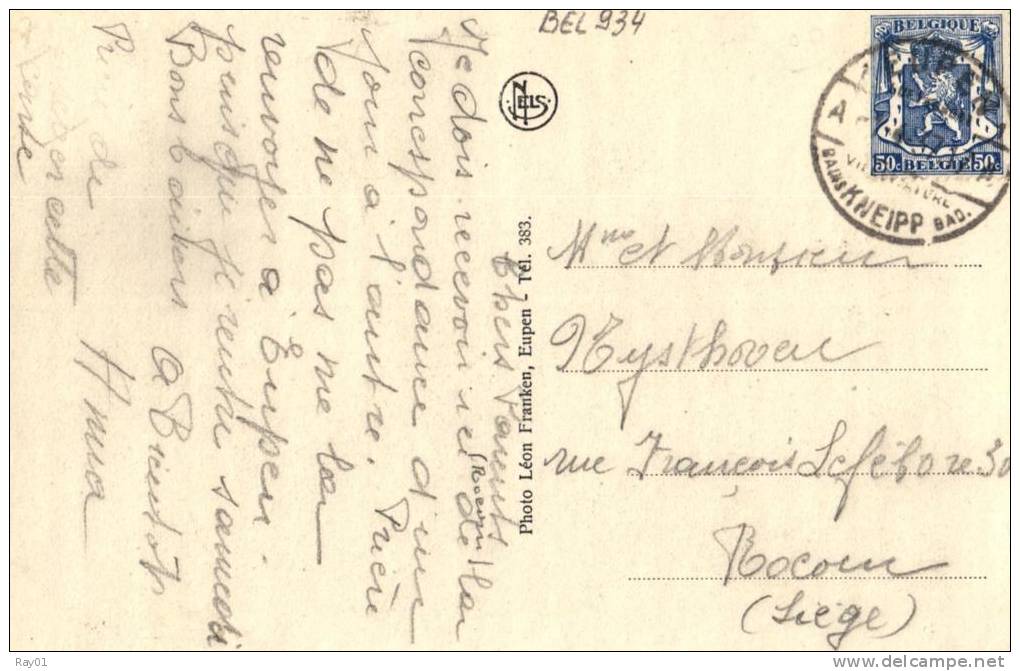 BEL 934
BELGIQUE
50c BELGIË 50c
EUPEN
BAINS KNEIPP BAD.
NELS
Chers Parents
Je dois recevoir ici de la
(Rocour)
correspondance d'un
jour à l'autre. Prière
de ne pas me la
renvoyer à Eupen.
puisque je rentre samedi
Bons baisers à Bientôt
Anna
Prière de
carte
Photo Léon Franken, Eupen - Tél. 383.
Mme et Monsieur
Nysthoven
rue François Lefèbvre 30
Rocour
(Liège)
Ray01
www.delcampe.net